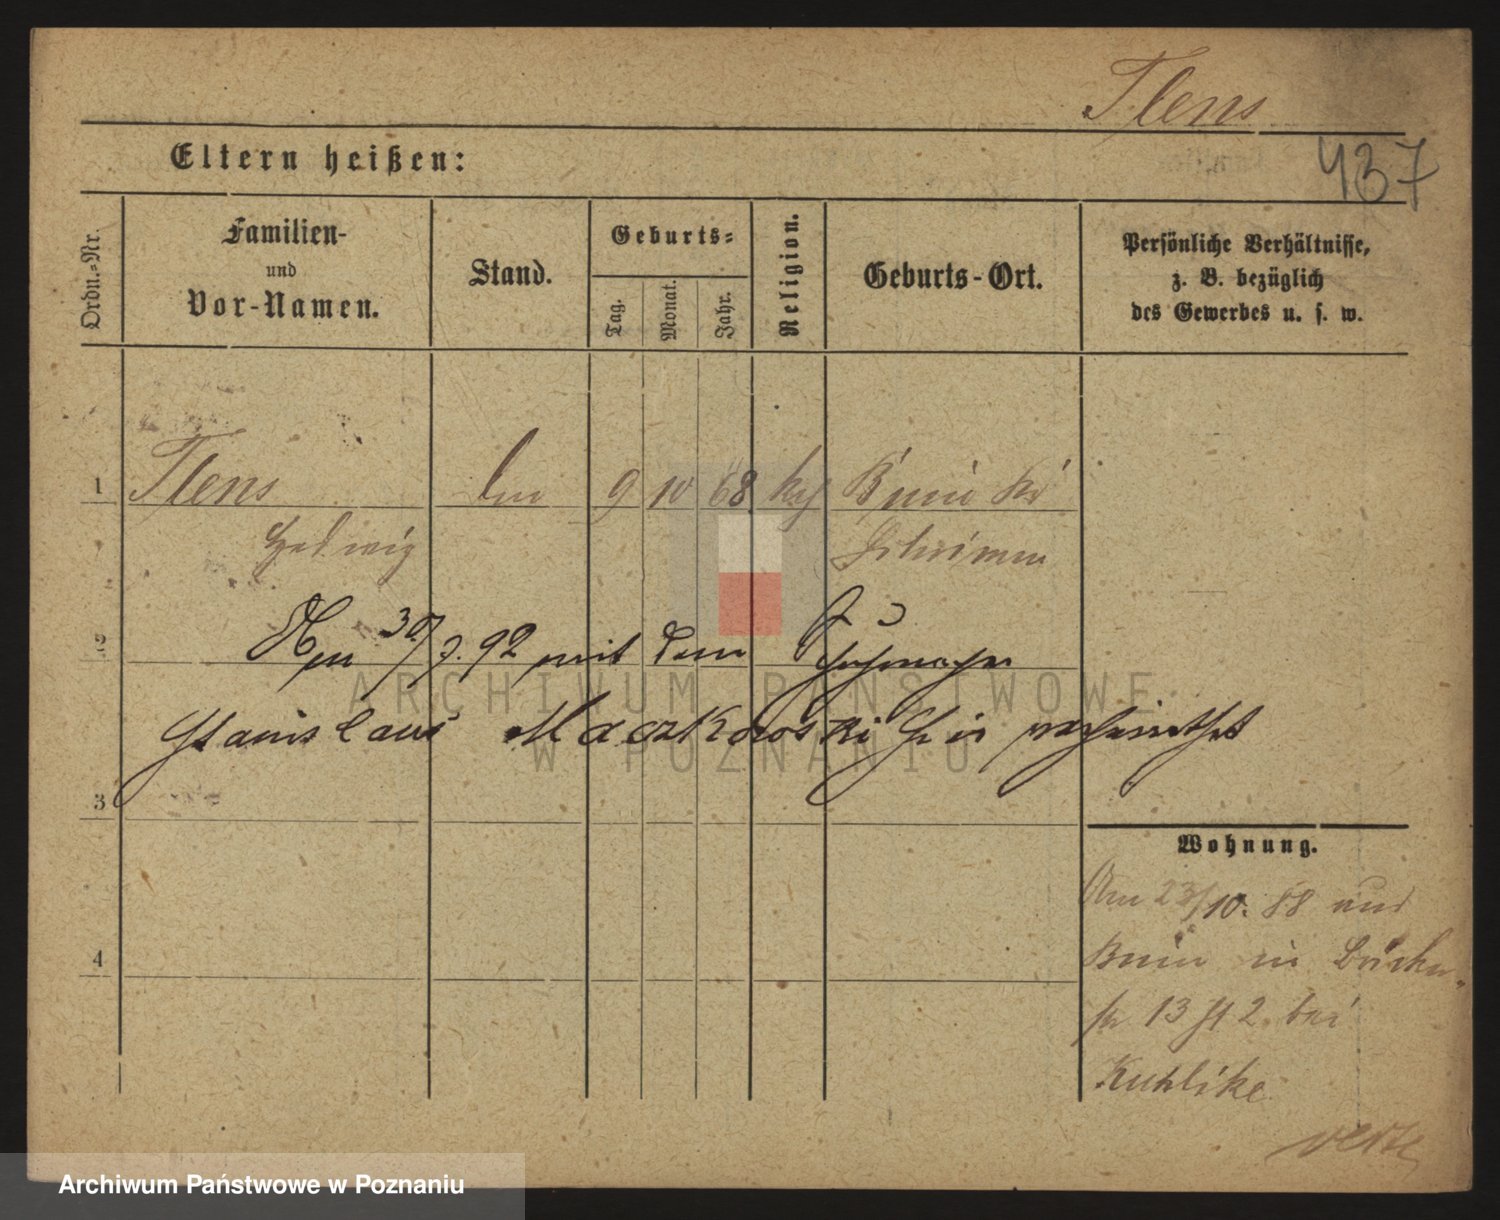 Tlens
437
Eltern heißen:
Ordn.-Nr.
Familien-
und
Vor-Namen.
Stand.
Geburts-
Tag.
Monat.
Jahr.
Religion.
Geburts-Ort.
Persönliche Verhältnisse,
z. B. bezüglich
des Gewerbes u. s. w.
1 Tlens 9 10 68 Bnin Kr
Hedwig Schrimm
2 Am 30/7. 92 mit dem
Stanislaus Maczkowski hier verheirathet
3
Wohnung.
Am 23/10. 88 aus
Bnin in
4
13 bei
Kuhlike
verte
ARCHIWUM PAŃSTWOWE
W POZNANIU
Archiwum Państwowe w Poznaniu